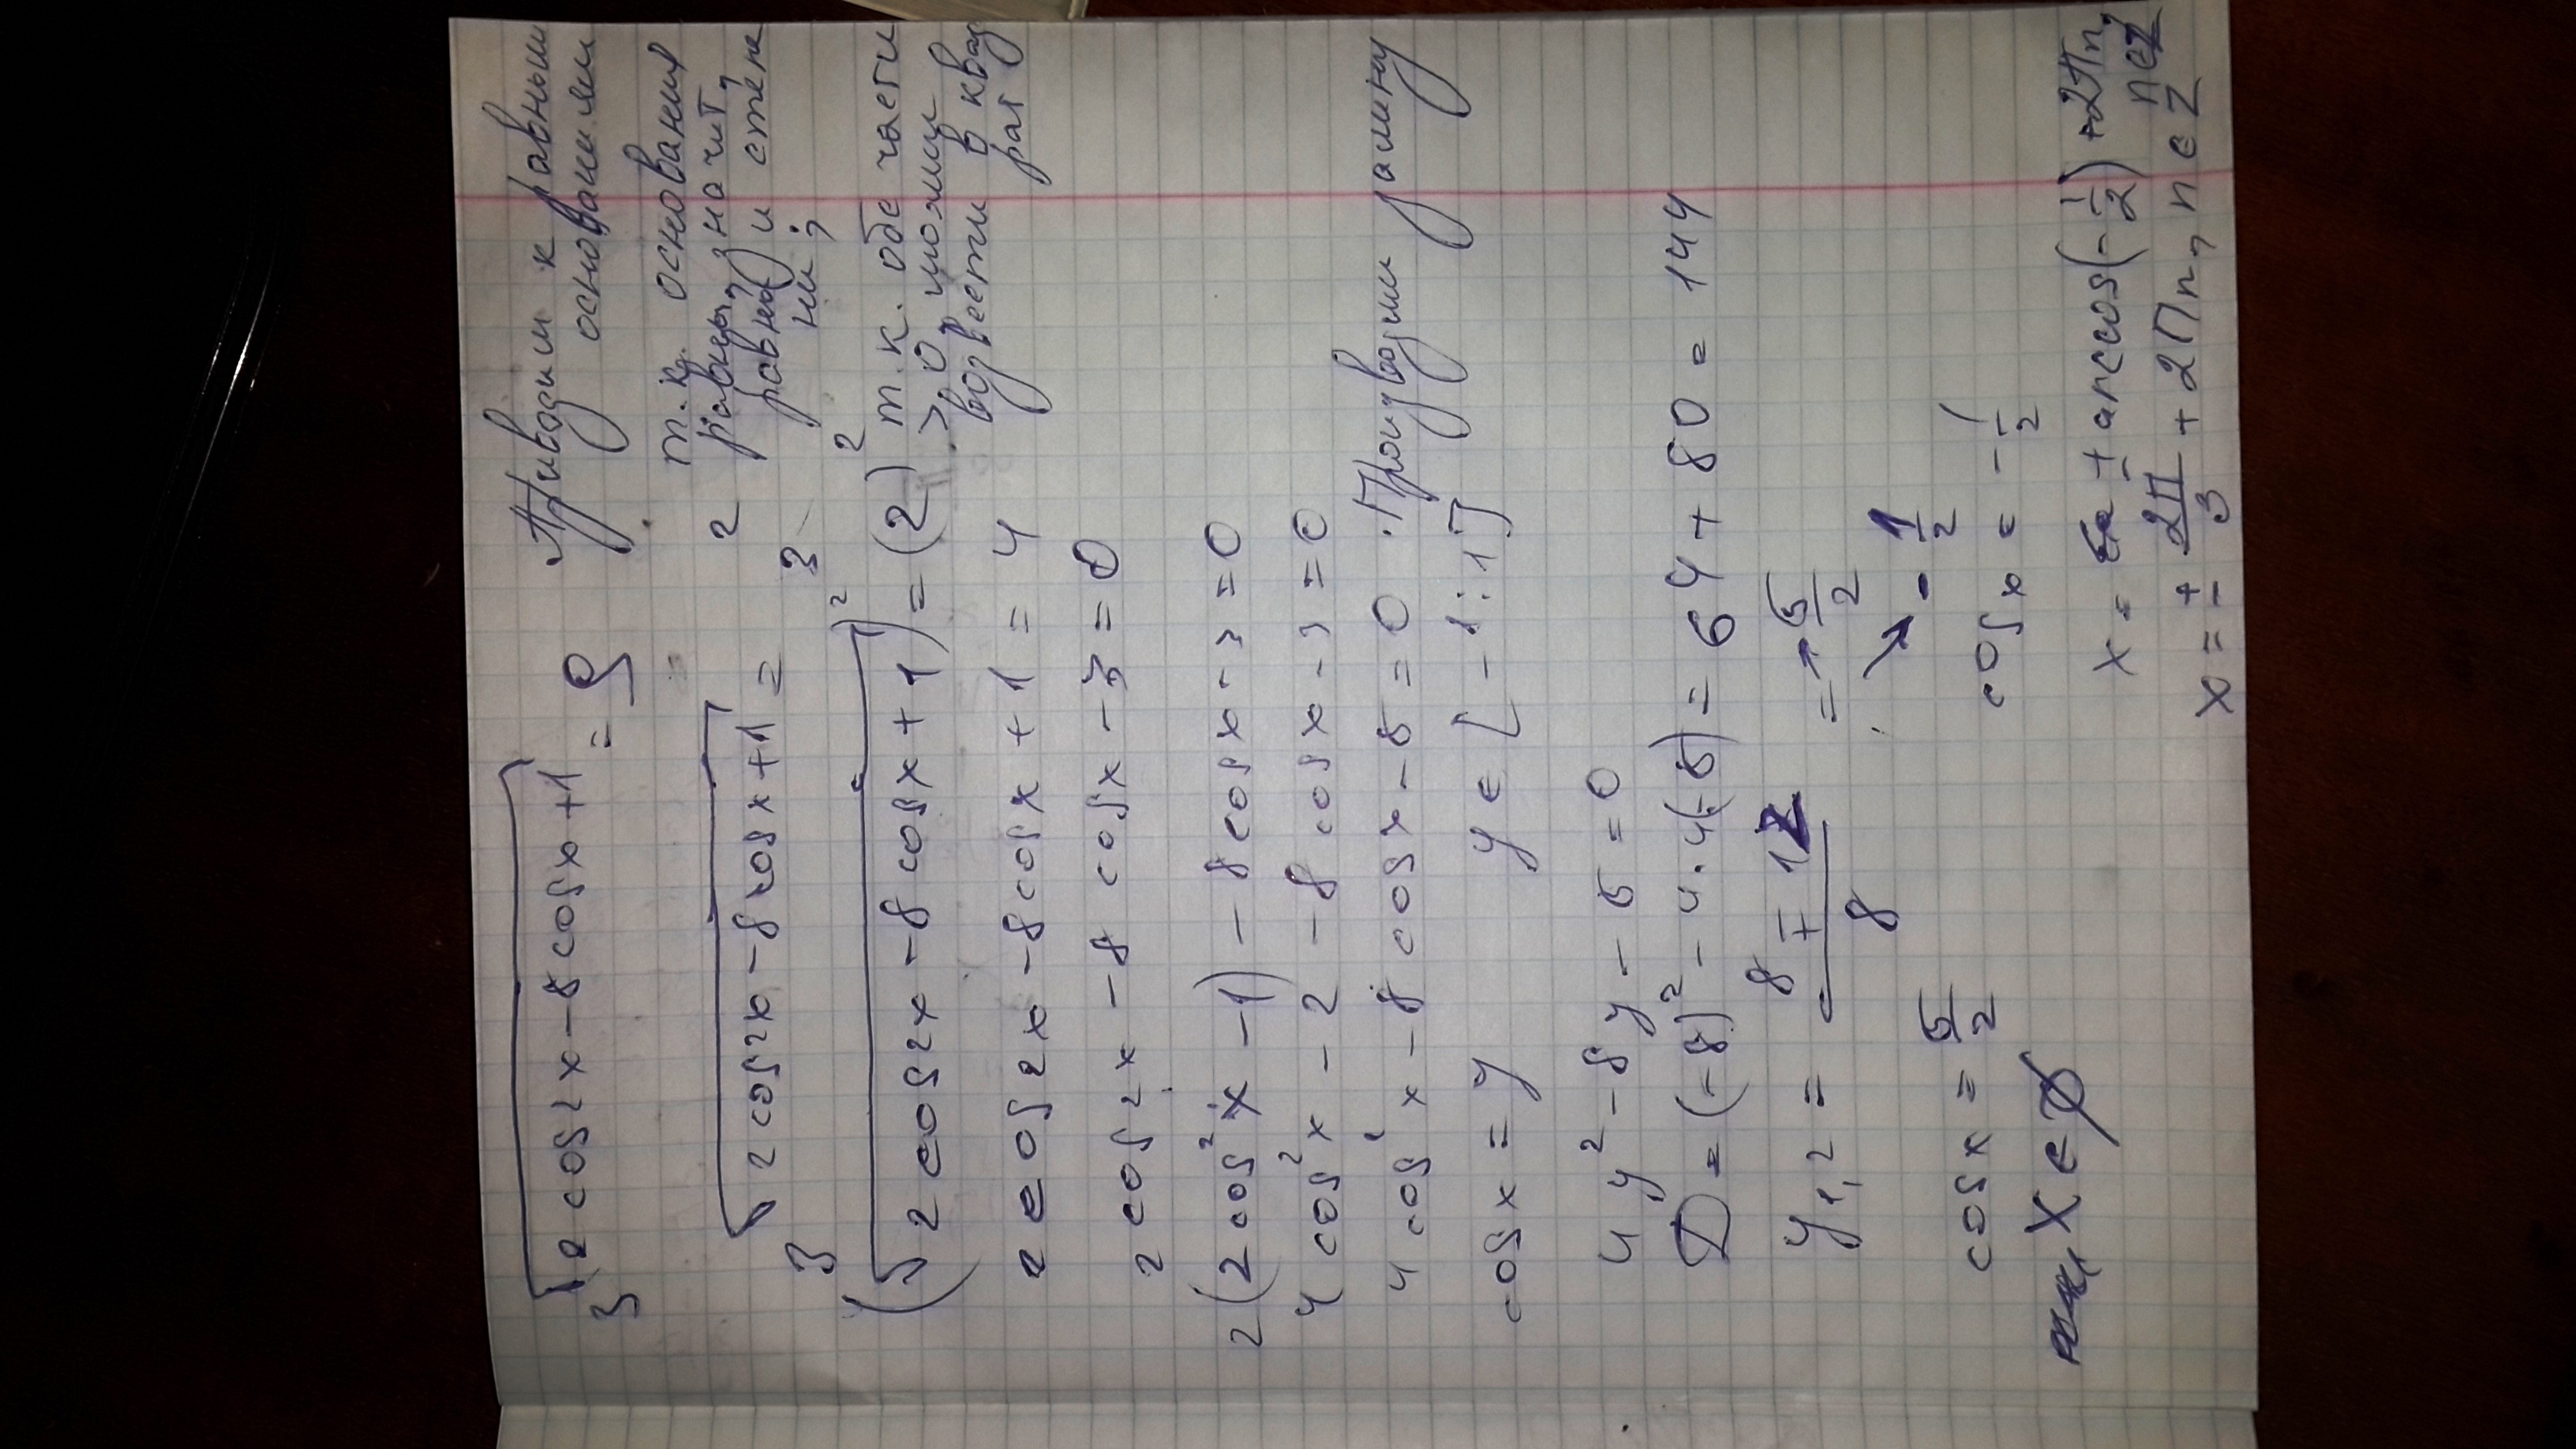 3^√(2cos2x-8cosx+1) = 9 Приводим к равным
основаниям
3^√(2cos2x-8cosx+1) = 3^2 т.к. основания
равны, значит,
равны и степе
ни;
(√(2cos2x-8cosx+1))² = (2)² т.к. обе части
>0 можем
возвести в квад
рат
2cos2x-8cosx+1=4
2cos2x-8cosx-3=0
2(2cos²x-1)-8cosx-3=0
4cos²x-2-8cosx-3=0
4cos²x-8cosx-5=0. Производим замену
cosx=y y∈[-1:1]
4y²-8y-5=0
D=(-8)²-4·4(-5)=64+80=144
y1,2 = (8∓12)/8 = → 5/2
↘ -1/2
cosx = 5/2 cosx = -1/2
x∈∅
x = ± arccos(-1/2)+2Пn,
n∈Z
x = ± 2П/3 + 2Пn, n∈Z